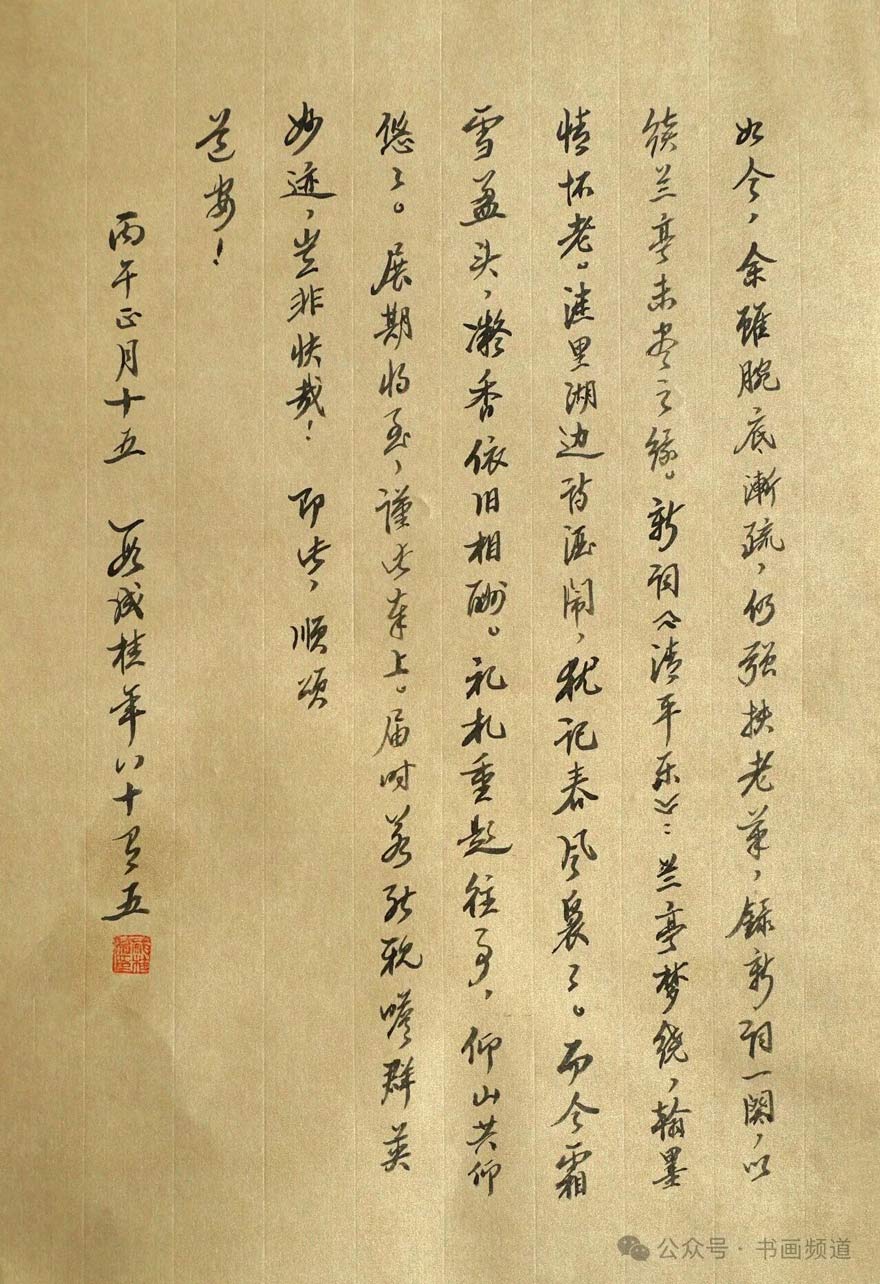 如今，余虽腕底渐疏，仍强扶老笔，录新词一阕，以
续兰亭未尽之缘。新词《清平乐》：兰亭梦绕，翰墨
情怀老。洼里湖边诗酒闹，犹记春风袅々。而今霜
雪盖头，凝香依旧相酬。礼札重题往事，仰山共仰
悠々。展期将至，谨此奉上。届时若能耽嗟群英
妙迹，岂非快哉！即此，顺颂
道安！
丙午正月十五 段成桂年八十有五
公众号·书画频道